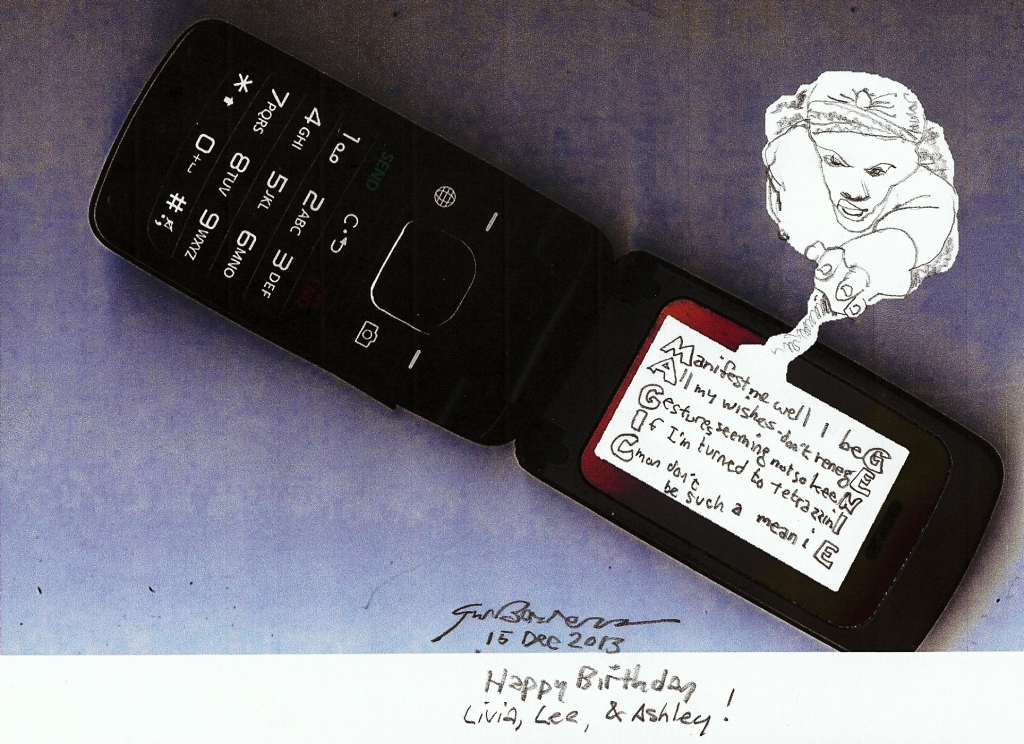 SEND C END
1 2ABC 3DEF
4GHI 5JKL 6MNO
7PQRS 8TUV 9WXYZ
* 0+ #
Manifest me well I beG
All my wishes - don't renegE
Gestures seeming not so keeN
If I'm turned to tetrazzinI
Cmon don't
be such a meaniE
15 Dec 2013
Happy Birthday
Livia, Lee, & Ashley!